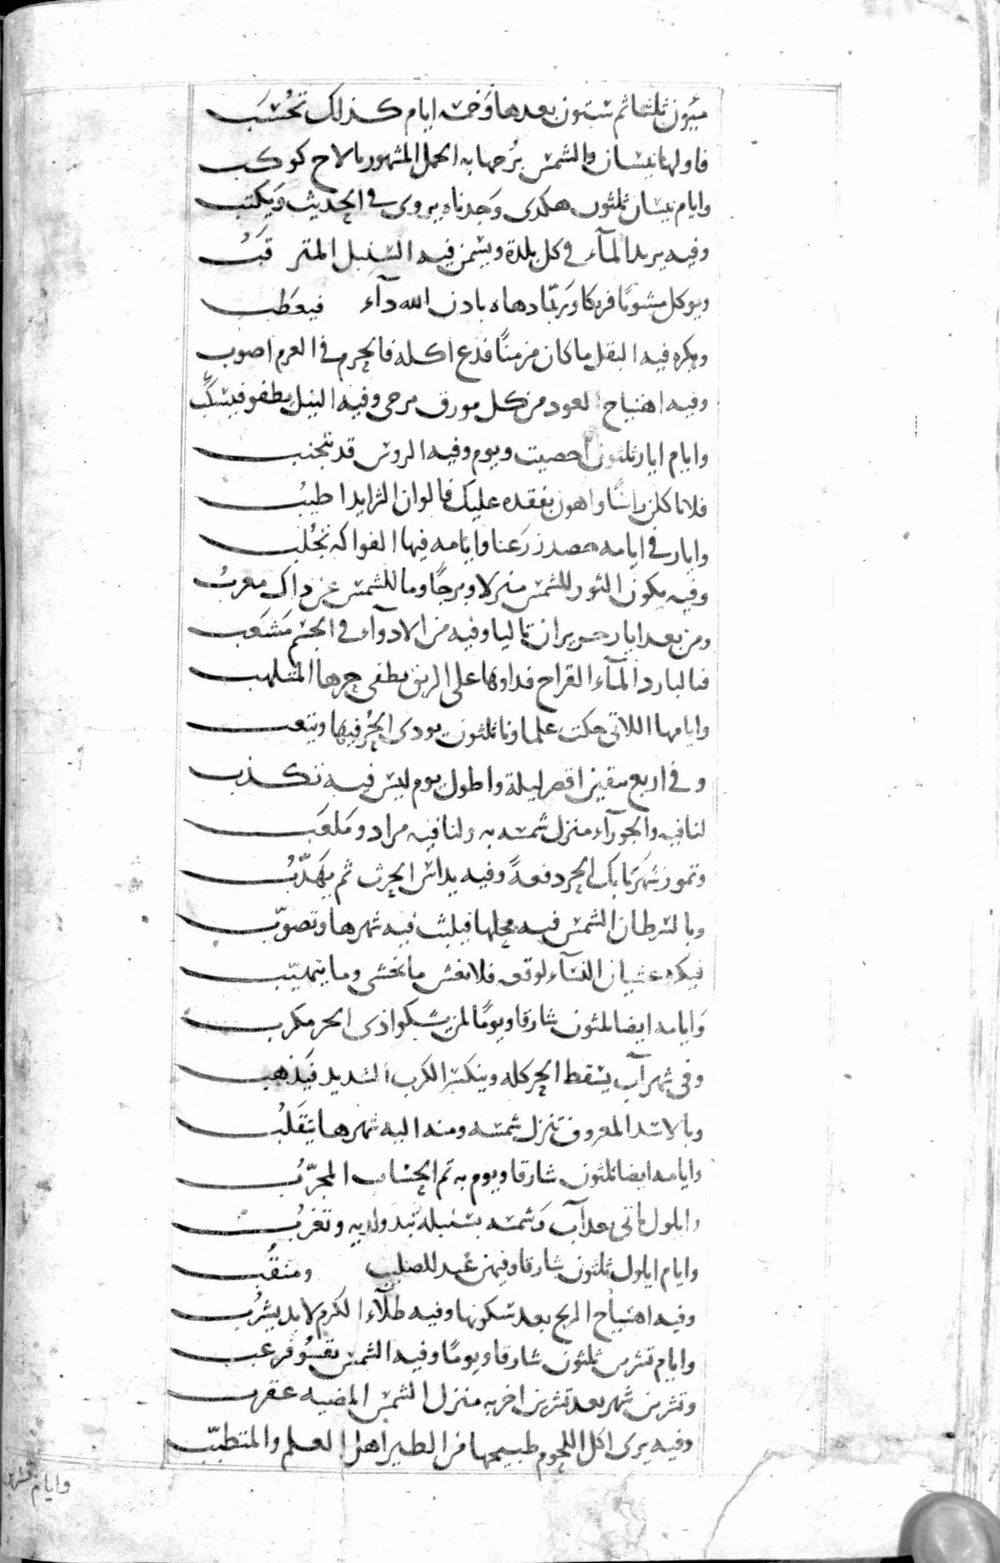 ميئون ثلثا ثم ستون بعدها وخمسة ايام كذلك تحسب
فاولها نيسان والشمس برجها به الحمل المشهور مالاح كوكب
وايام نيسان ثلثون هكذى وجدناه يروى في الحديث ويكتب
وفيه يريد المآء في كل بلدة ويسمن فيه السنبل المتر قب
ويوكل مشويا فريكا وربما دهاه باذن الله دآء فيعطب
ويكره فيه البقل ما كان مزمنا فدع اكله فالحزم في العزم اصوب
وفيه اهتياج العود من كل مورق مرحى وفيه النيل يطفو فيسكب
وايام ايار ثلثون احصيت ويوم وفيه الروس قد تتجنب
فلا تاكلن راسا واهون بفقده عليك فالوان الثرايد اطيب
وايار في ايامه حصد زرعنا وايامه فيها الفواكه تجلب
وفيه يكون الثور للشمس منزلا وبرجا وما للشمس عن ذاك معرب
ومن بعد ايار حزيران تاليا وفيه من الادوآء في الجسم مشعب
فبالبارد المآء القراح فداوها على الريق يطفي حرها المتلهب
وايامها اللاتي حكت علماونا ثلثون يودى الحر فيها ويتعب
وفي اربع يبقين اقصر ليلة واطول يوم ليس فيه تكذب
لنا فيه والجوزآء منزل شمسه به ولنا فيه مراد وملعب
وتموز شهر ياتك الحر دفعة وفيه يداس الحرث ثم يهذب
وبالسرطان الشمس فيه محلها فيلبث فيه شهرها وتصوب
فيكره غشيان النسآء لوقعه فلا تغش ما تخشى وما يتهيب
وايامه ايضا ثلثون شارقا ويوما لمن يشكوا اذى الحر مكرب
وفي شهر آب يسقط الحر كله وينكسر الكرب الشديد فيذهب
وبالاسد المعروف تنزل شمسه ومنه اليه شهرها يتقلب
وايامه ايضا ثلثون شارقا ويوم به تم الحساب المجرب
وايلول ياتي بعد آب وشمسه بسنبلة تبدو لديه وتغرب
وايام ايلول ثلثون شارقا وفيهن عيد للصليب ومنقب
وفيه اهتياج الريح بعد سكونها وفيه طلآء الكرم لابد يشرب
وايام تشرين ثلثون شارقا ويوما وفيه الشمس
وتشرين شهر بعد تشرين اخر به منزل الشمس المضيه عقرب
وفيه يرى اكل اللحوم طبيخها من الطير اهل العلم والمتطبب
وايام